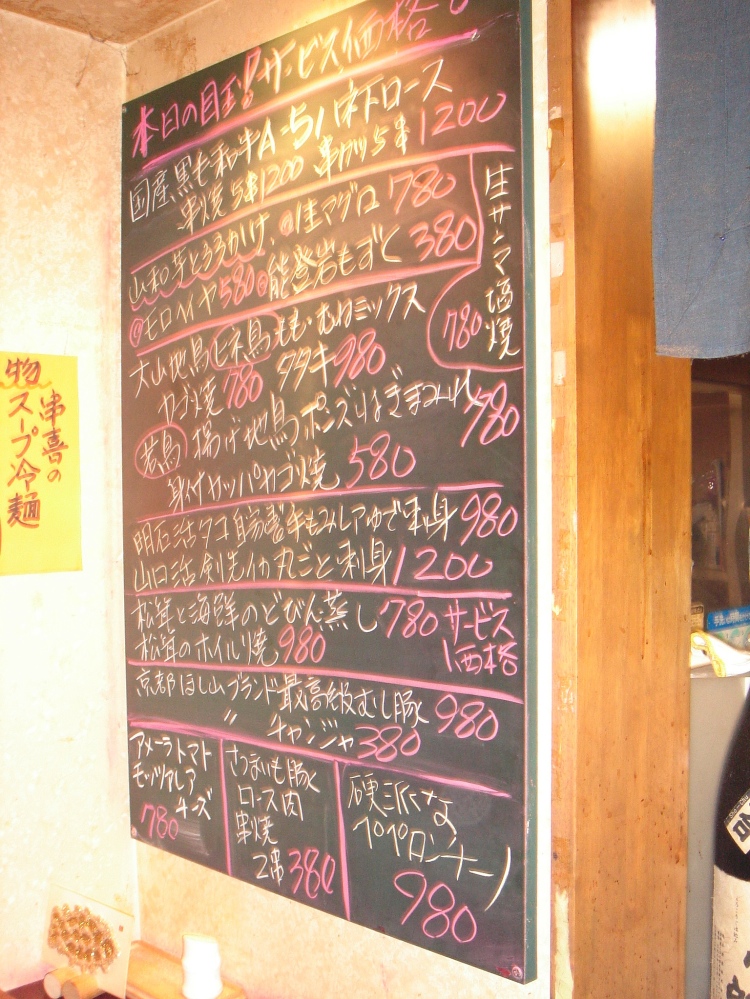 本日の目玉!! サービス価格
国産黒毛和牛A-5ハネ下ロース
串焼 5串1200 串カツ5串1200
山和芋とろろかけ、生マグロ 780
モロヘイヤ580 能登岩もずく 380
生サンマ塩焼
780
大山地鳥 ヒネ鳥 もも・むねミックス
カゴ焼 780 タタキ 980
若鳥 揚げ地鳥ポンズねぎまみれ 780
身付カッパカゴ焼 580
明石活タコ自家製手もみレアゆで刺身 980
山口活剣先イカ丸ごと刺身 1200
松茸と海鮮のどびん蒸し 780 サービス
松茸のホイル焼 980 価格
京都ほし山ブランド最高級むし豚 980
〃 チャンジャ 380
アメーラトマト
モッツァレア
チーズ
780
さつまいも豚
ロース肉
串焼
2串 380
硬派な
ペペロンチーノ
980
串喜の
スープ冷麺